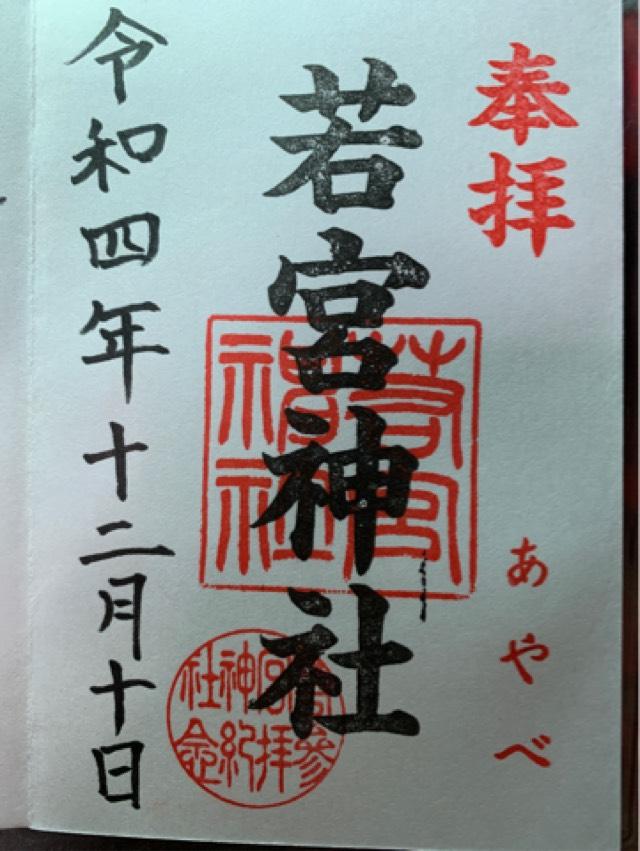 奉拝
あやべ
若宮神社
若宮
神社
令和四年十二月十日
参拝
紀念